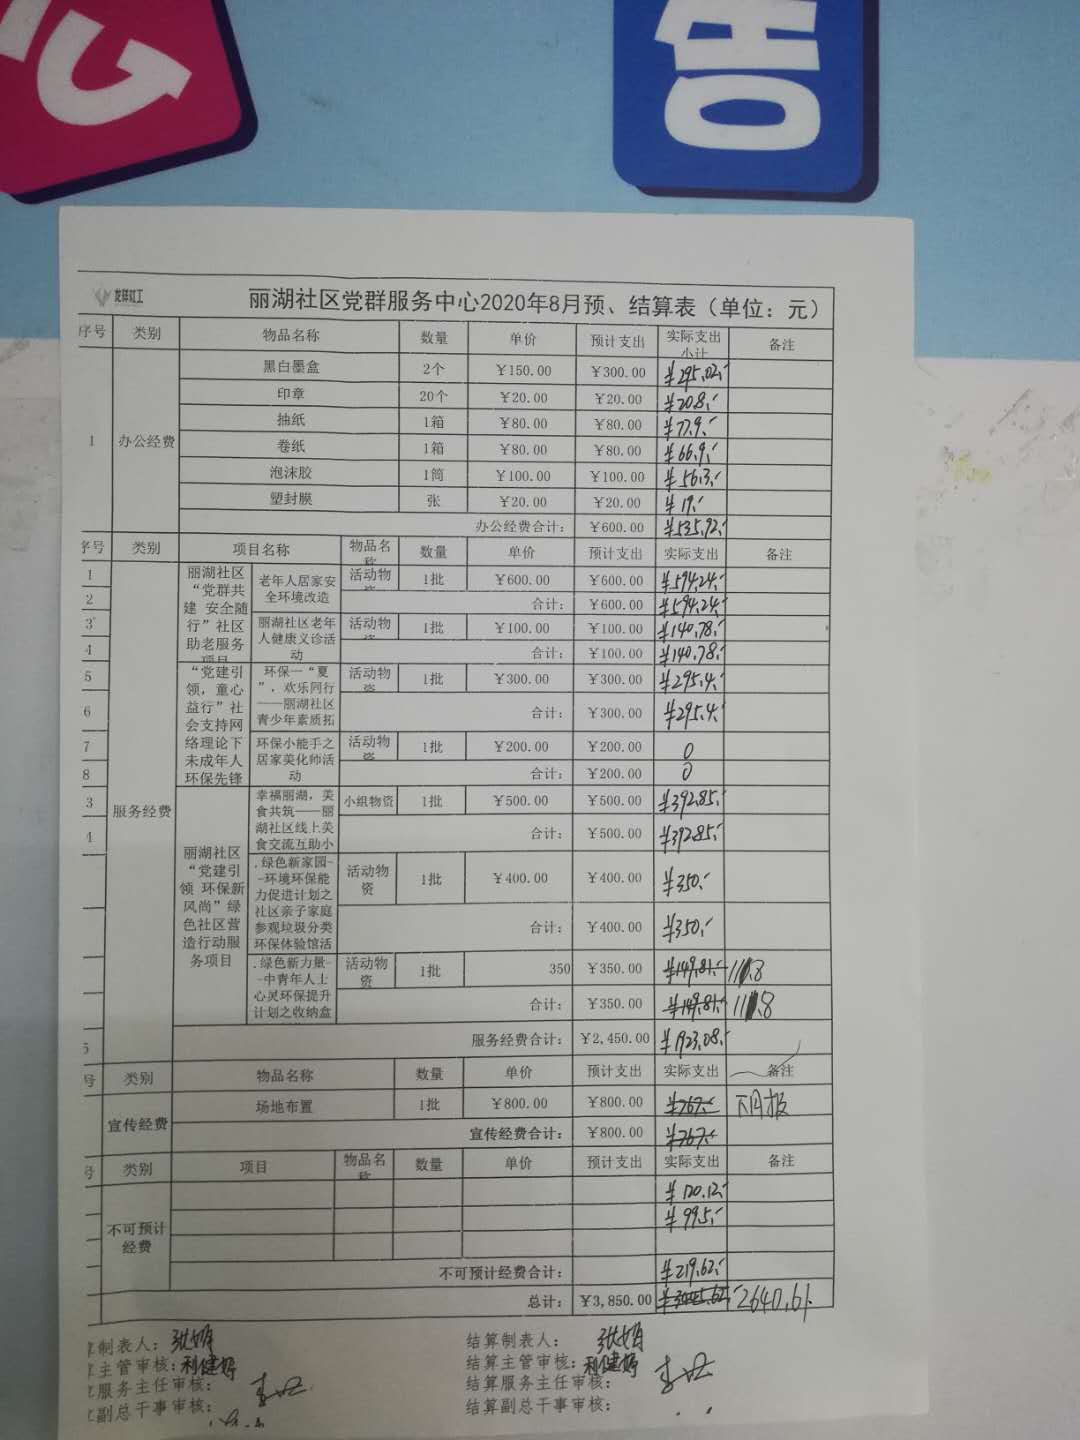 龙祥社工
丽湖社区党群服务中心2020年8月预、结算表（单位：元）
序号 类别 物品名称 数量 单价 预计支出 实际支出小计 备注
1 办公经费 黑白墨盒 2个 ¥150.00 ¥300.00 ¥295.02
印章 20个 ¥20.00 ¥20.00 ¥20.8
抽纸 1箱 ¥80.00 ¥80.00 ¥77.9
卷纸 1箱 ¥80.00 ¥80.00 ¥66.9
泡沫胶 1筒 ¥100.00 ¥100.00 ¥56.3
塑封膜 张 ¥20.00 ¥20.00 ¥19
办公经费合计： ¥600.00 ¥535.92
序号 类别 项目名称 物品名称 数量 单价 预计支出 实际支出 备注
服务经费
丽湖社区“党群共建 安全随行”社区助老服务项目
1 老年人居家安全环境改造 活动物资 1批 ¥600.00 ¥600.00 ¥594.24
2 合计： ¥600.00 ¥594.24
3 丽湖社区老年人健康义诊活动 活动物资 1批 ¥100.00 ¥100.00 ¥140.78
4 合计： ¥100.00 ¥140.78
“党建引领，童心益行”社会支持网络理论下未成年人环保先锋
5 环保一“夏”，欢乐同行——丽湖社区青少年素质拓 活动物资 1批 ¥300.00 ¥300.00 ¥295.4
6 合计： ¥300.00 ¥295.4
7 环保小能手之居家美化师活动 活动物资 1批 ¥200.00 ¥200.00 0
8 合计： ¥200.00 0
丽湖社区“党建引领 环保新风尚”绿色社区营造行动服务项目
3 幸福丽湖，美食共筑——丽湖社区线上美食交流互助小 小组物资 1批 ¥500.00 ¥500.00 ¥392.85
4 合计： ¥500.00 ¥392.85
.绿色新家园--环境环保能力促进计划之社区亲子家庭参观垃圾分类环保体验馆活 活动物资 1批 ¥400.00 ¥400.00 ¥350
合计： ¥400.00 ¥350
.绿色新力量--中青年人士心灵环保提升计划之收纳盒 活动物资 1批 350 ¥350.00 ¥149.81
合计： ¥350.00 ¥149.81
5 服务经费合计： ¥2,450.00 ¥1923.08
号 类别 物品名称 数量 单价 预计支出 实际支出 备注
宣传经费 场地布置 1批 ¥800.00 ¥800.00 ¥767 下月报
宣传经费合计： ¥800.00 ¥767
号 类别 项目 物品名称 数量 单价 预计支出 实际支出 备注
不可预计经费 ¥120.12
¥99.5
不可预计经费合计： ¥219.62
总计： ¥3,850.00 ¥3445.62 2640.61
制表人： 张娟 结算制表人： 张娟
主管审核： 利健婷 结算主管审核： 利健婷
服务主任审核： 结算服务主任审核：
副总干事审核： 结算副总干事审核：